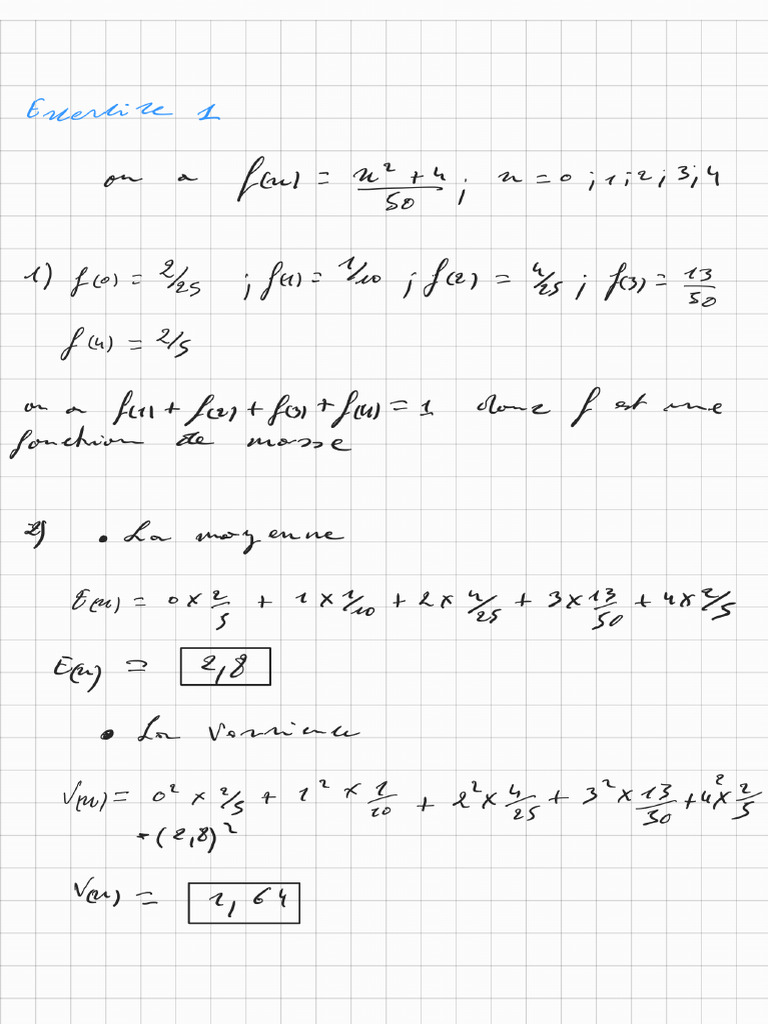 Exercice 1
on a f(x) = x² + 4 / 50 ; x = 0 ; 1 ; 2 ; 3 ; 4
1) f(0) = 2/25 ; f(1) = 1/10 ; f(2) = 4/25 ; f(3) = 13/50
f(4) = 2/5
on a f(1) + f(2) + f(3) + f(4) = 1 donc f est une
fonction de masse
2) • La moyenne
E(x) = 0 × 2/5 + 1 × 1/10 + 2 × 4/25 + 3 × 13/50 + 4 × 2/5
E(x) = 2,8
• La variance
V(x) = 0² × 2/5 + 1² × 1/10 + 2² × 4/25 + 3² × 13/50 + 4² × 2/5
- (2,8)²
V(x) = 1,64